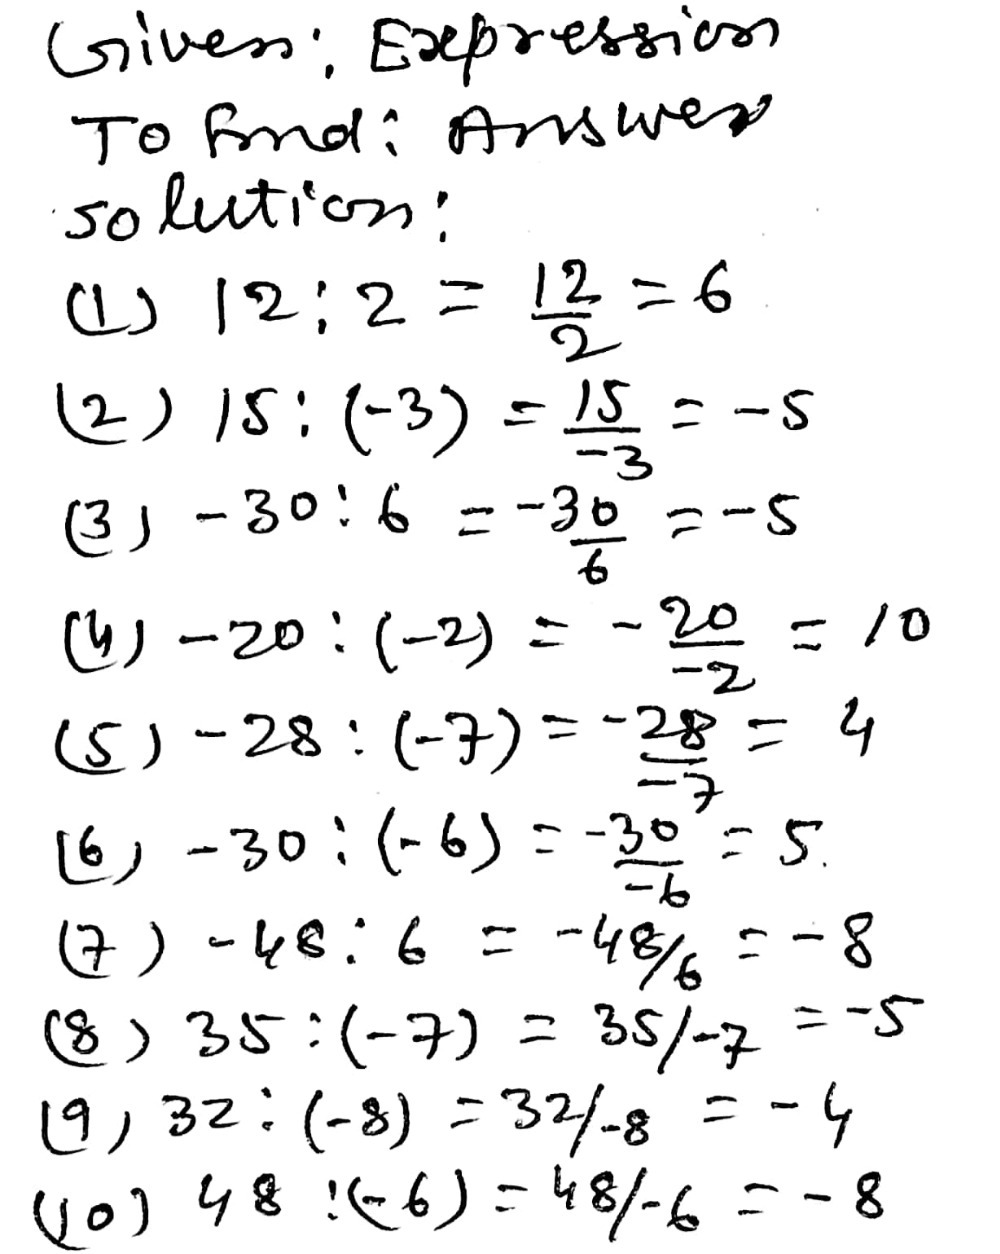 Given: Expression
To find: Answer
solution:
(1) 12:2 = 12/2 = 6
(2) 15:(-3) = 15/-3 = -5
(3) -30:6 = -30/6 = -5
(4) -20:(-2) = -20/-2 = 10
(5) -28:(-7) = -28/-7 = 4
(6) -30:(-6) = -30/-6 = 5.
(7) -48:6 = -48/6 = -8
(8) 35:(-7) = 35/-7 = -5
(9) 32:(-8) = 32/-8 = -4
(10) 48:(-6) = 48/-6 = -8